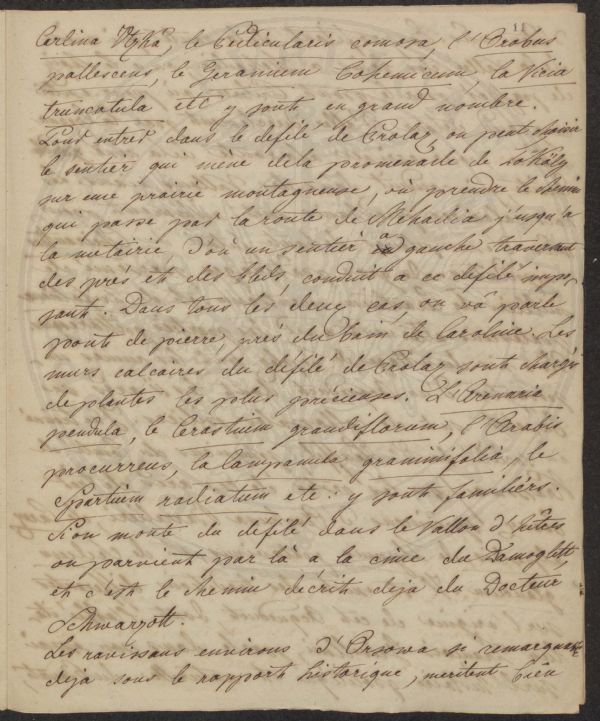 11
Carlina Utzka, le Pedicularis comosa, l'Orobus
pallescens, le Geranium Bohemicum, la Vicia
truncatula etc y sont en grand nombre.
Pour entrer dans le defilé de Prolaz on peut choisir
le sentier qui mène de la promenade de
sur une prairie montagneuse, où prendre le chemin
qui passe par la route de Mehadia j'usqu'à
la metairie, d'où un sentier à gauche traversant
des prés et des bleds, conduit a ce defilé impo,
sant. Dans tous les deux cas, on vâ par le
ponts de pierre, prés du bain de Caroline. Les
murs calcaires du défilé de Prolaz sont chargés
de plantes les plus précieuses. L'Arenaria
pendula, le Cerastium grandiflorum, l'Arabis
procurrens, la Campanula graminifolia, le
Spartium radiatum etc. y sont familiérs.
L'on monte du défilé dans le Vallon d'
on parvient par là a la cime du Damoglett,
et c'est le chemin décrit deja du Docteur
Schwarzott.
Les ravissans environs d'Orsowa si remarquable
deja sous le rapport historique, meritent bien